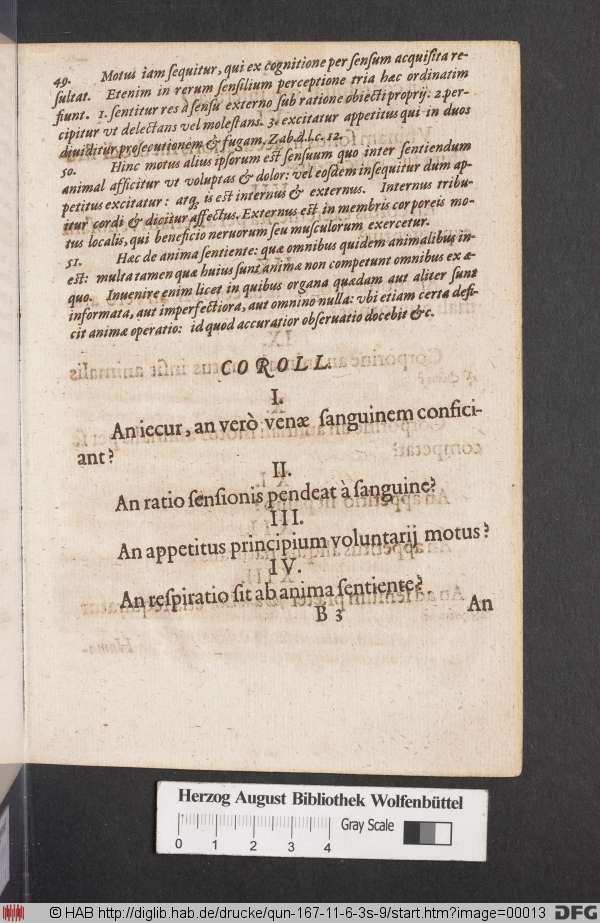 49. Motui iam sequitur, qui ex cognitione per sensum acquisita re-
sultat. Etenim in rerum sensilium perceptione tria hæc ordinatim
fiunt. 1. sentitur res à sensu externo sub ratione obiecti proprij. 2. per-
cipitur vt delectans vel molestans. 3. excitatur appetitus qui in duos
diuiditur prosecutionem & fugam. Zab. d. l. c. 12.
50. Hinc motus alius ipsorum est sensuum quo inter sentiendum
animal afficitur vt voluptas & dolor: vel eosdem insequitur dum ap-
petitus excitatur: atq; is est internus & externus. Internus tribu-
itur cordi & dicitur affectus. Externus est in membris corporeis mo-
tus localis, qui beneficio neruorum seu musculorum exercetur.
51. Hæc de anima sentiente: quæ omnibus quidem animalibus in-
est: multa tamen quæ huius sunt animæ non competunt omnibus ex æ-
quo. Inuenire enim licet in quibus organa quædam aut aliter sunt
informata, aut imperfectiora, aut omnino nulla: vbi etiam certa defi-
cit animæ operatio: id quod accuratior obseruatio docebit &c.
COROLL.
I.
An iecur, an verò venæ sanguinem confici-
ant?
II.
An ratio sensionis pendeat à sanguine?
III.
An appetitus principium voluntarij motus?
IV.
An respiratio sit ab anima sentiente?
B 3 An
Herzog August Bibliothek Wolfenbüttel
0 1 2 3 4 Gray Scale
© HAB http://diglib.hab.de/drucke/qun-167-11-6-3s-9/start.htm?image=00013 DFG